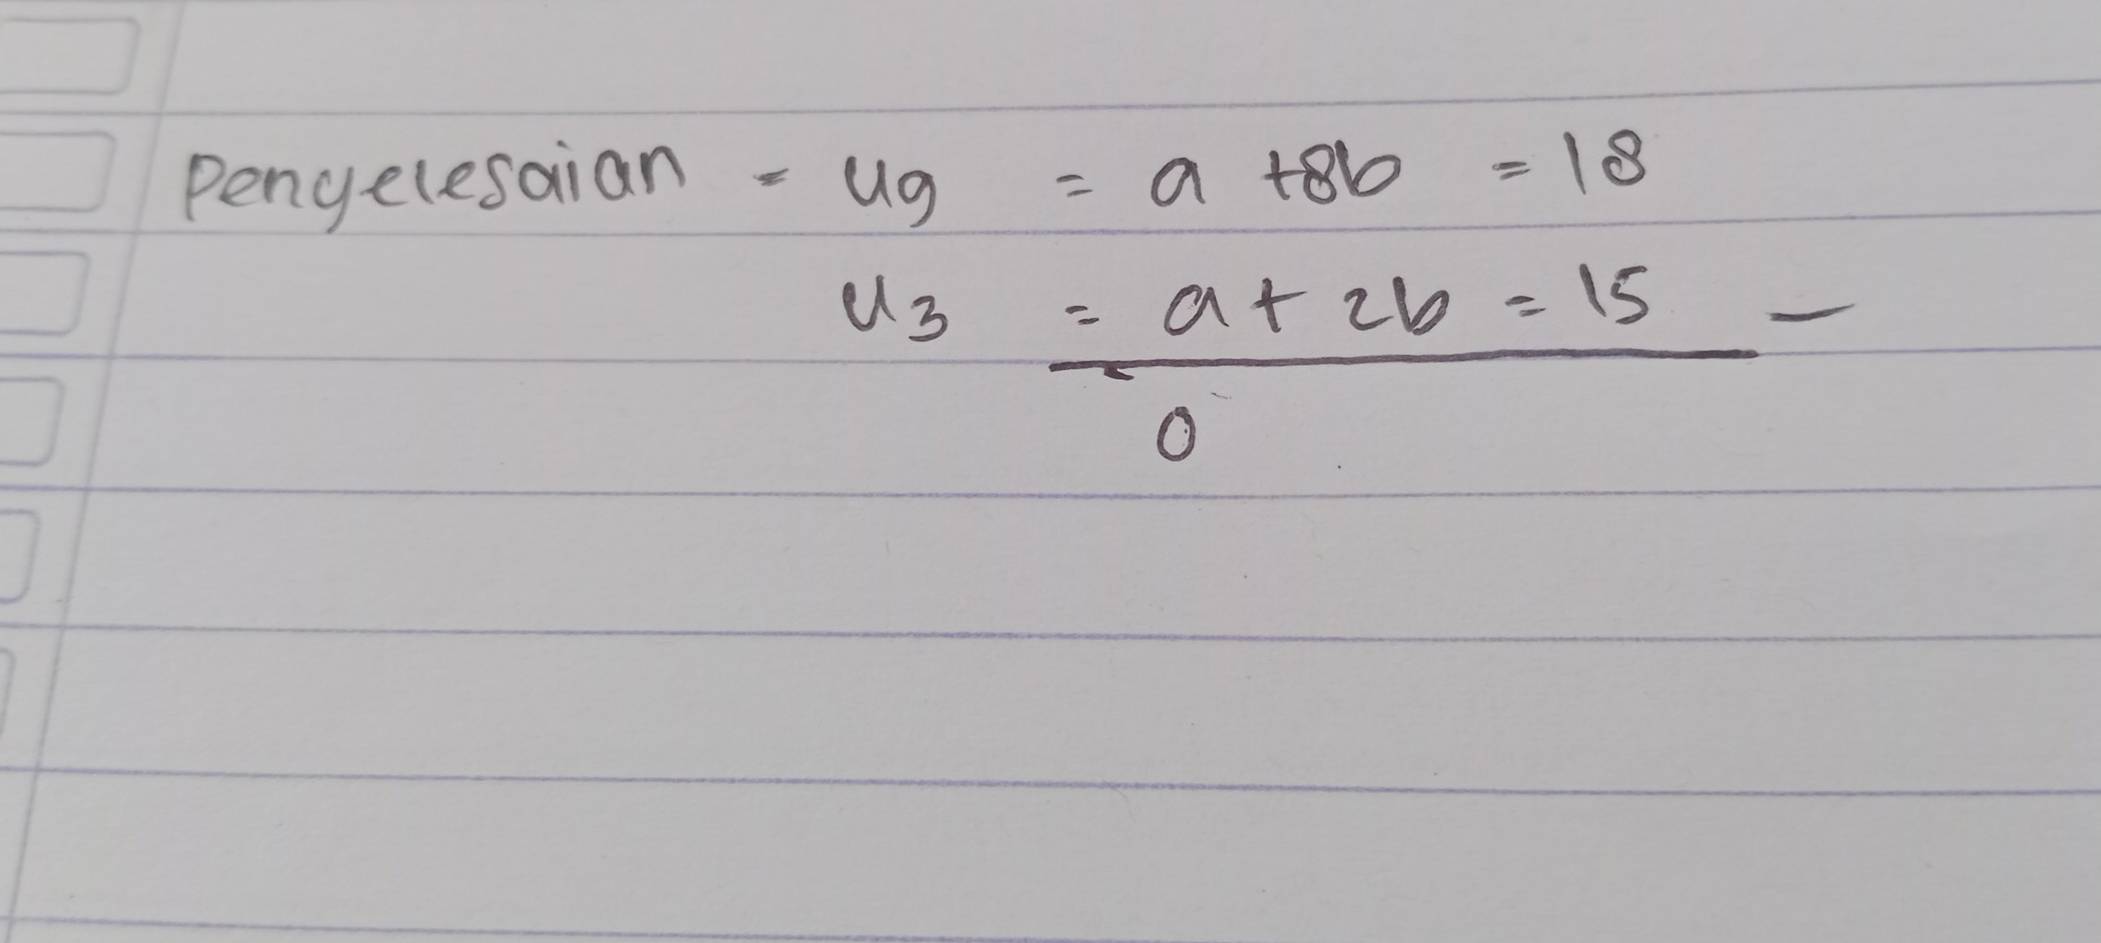 Penyelesaian = U9 = a +8b = 18
U3 = a + 2b = 15 -
0